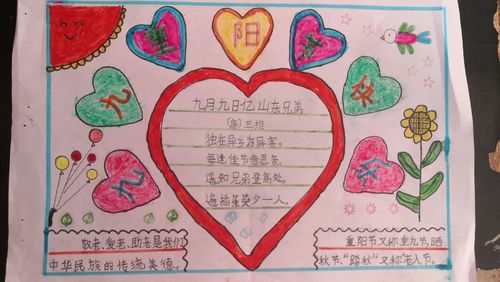 重 阳 节
九
九
九月九日忆山东兄弟
(唐)王维
独在异乡为异客。
每逢佳节倍思亲。
遥知兄弟登高处,
遍插茱萸少一人。
敬老、爱老、助老是我们
中华民族的传统美德。
重阳节又称重九节,晒
秋节,“踏秋”又称“老人节。